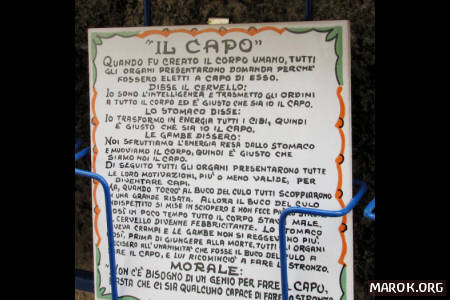 "IL CAPO"
QUANDO FU CREATO IL CORPO UMANO, TUTTI
GLI ORGANI PRESENTARONO DOMANDA PERCHÉ
FOSSERO ELETTI A CAPO DI ESSO.
DISSE IL CERVELLO:
IO SONO L'INTELLIGENZA E TRASMETTO GLI ORDINI
A TUTTO IL CORPO ED È GIUSTO CHE SIA IO IL CAPO.
LO STOMACO DISSE:
IO TRASFORMO IN ENERGIA TUTTI I CIBI, QUINDI
È GIUSTO CHE SIA IO IL CAPO.
LE GAMBE DISSERO:
NOI SFRUTTIAMO L'ENERGIA RESA DALLO STOMACO
E MUOVIAMO IL CORPO, QUINDI È GIUSTO CHE
SIAMO NOI IL CAPO.
DI SEGUITO TUTTI GLI ORGANI PRESENTARONO TUTTE
LE LORO MOTIVAZIONI, PIU' O MENO VALIDE, PER
DIVENTARE CAPI.
QUANDO TOCCO' AL BUCO DEL CULO TUTTI SCOPPIARONO
UNA GRANDE RISATA. ALLORA IL BUCO DEL CULO
INDISPETTITO SI MISE IN SCIOPERO E NON FECE
IN POCO TEMPO TUTTO IL CORPO STAVA MALE.
CERVELLO DIVENNE FEBBRICITANTE. LO STOMACO
CRAMPI E LE GAMBE NON SI REGGEVANO PIU'.
PRIMA DI GIUNGERE ALLA MORTE, TUTTI GLI ORGANI
ALL'UNANIMITA' CHE FOSSE IL BUCO DEL CULO A
IL CAPO, E LUI RICOMINCIO' A FARE LO STRONZO.
MORALE:
"NON C'È BISOGNO DI UN GENIO PER FARE IL CAPO,
BASTA CHE CI SIA QUALCUNO CAPACE DI FARE STRONZO
MAROK.ORG